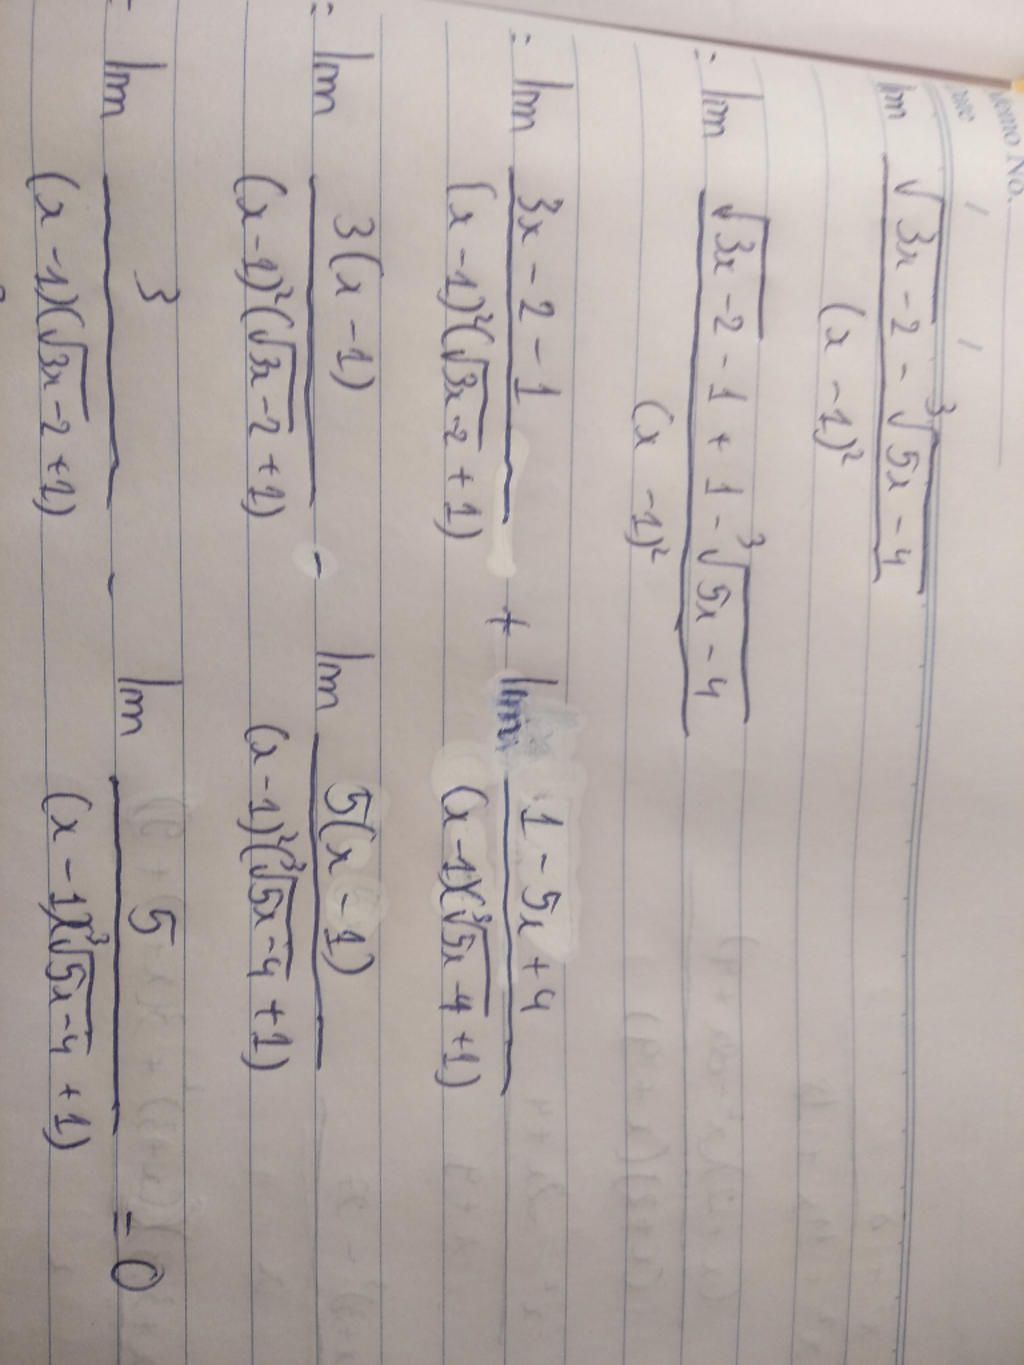 Memo No.
lim (√(3x-2) - ∛(5x-4)) / (x-1)²
= lim (√(3x-2) - 1 + 1 - ∛(5x-4)) / (x-1)²
= lim (3x-2-1) / ((x-1)²(√(3x-2) + 1)) + lim (1-5x+4) / ((x-1)(∛(5x-4) + 1))
= lim 3(x-1) / ((x-1)²(√(3x-2) + 1)) - lim 5(x-1) / ((x-1)²(∛(5x-4) + 1))
= lim 3 / ((x-1)(√(3x-2) + 1)) - lim 5 / ((x-1)(∛(5x-4) + 1)) = 0